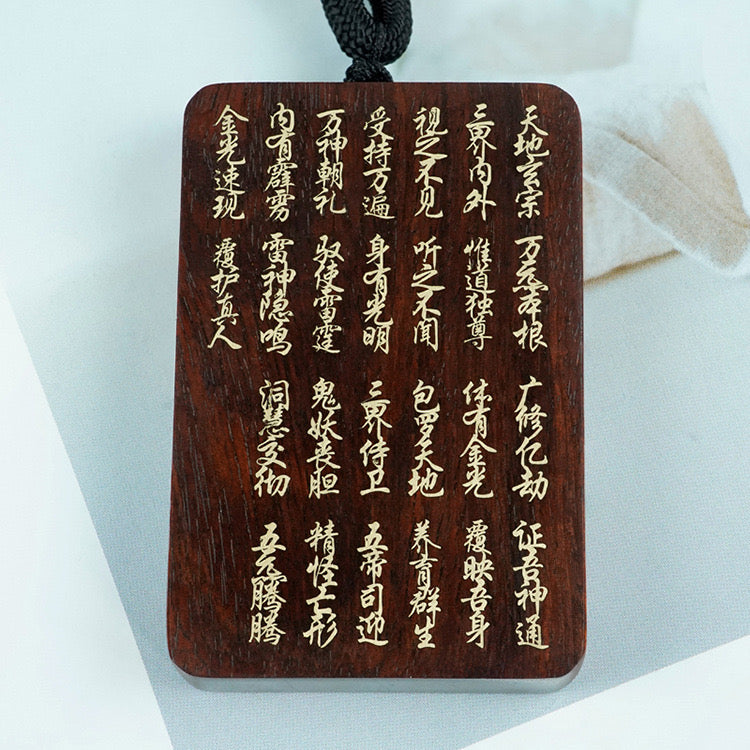 天地玄宗 万炁本根 广修亿劫 证吾神通
三界内外 惟道独尊 体有金光 覆映吾身
视之不见 听之不闻 包罗天地 养育群生
受持万遍 身有光明 三界侍卫 五帝司迎
万神朝礼 驭使雷霆 鬼妖丧胆 精怪亡形
内有霹雳 雷神隐鸣 洞慧交彻 五炁腾腾
金光速现 覆护真人